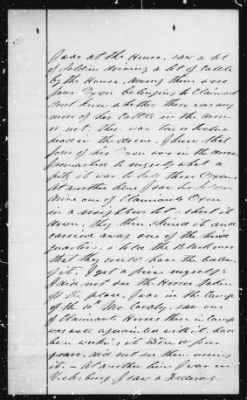 I was at the House, saw a lot
of Soldiers driving a lot of Cattle
by the House, among them was
four Oxen belonging to Claimant
dont know whether there was any
more of his Cattle in the drove
or not, there was two or three
head in the drove, I knew that
four of his Oxen was in the drove
remarked to myself what a
pity it was to kill those Oxen.
At another time I saw the Soldiers
drive one of Claimants Oxen
in a neighbors lot & shot it
down, they then skinned it and
carried away one of the hind
quarters, & told the Blackones
that they could have the balance
of it, I got a piece myself.
I did not see the Horses taken
off the place, I was in the Camp
of the 10th Mo Cavalry, saw one
of Claimants Horses there in Camp
was well acquainted with it, had
been working it two or four
years, did not see them using
it. At another time I was in
Vicksburg I saw a Federal